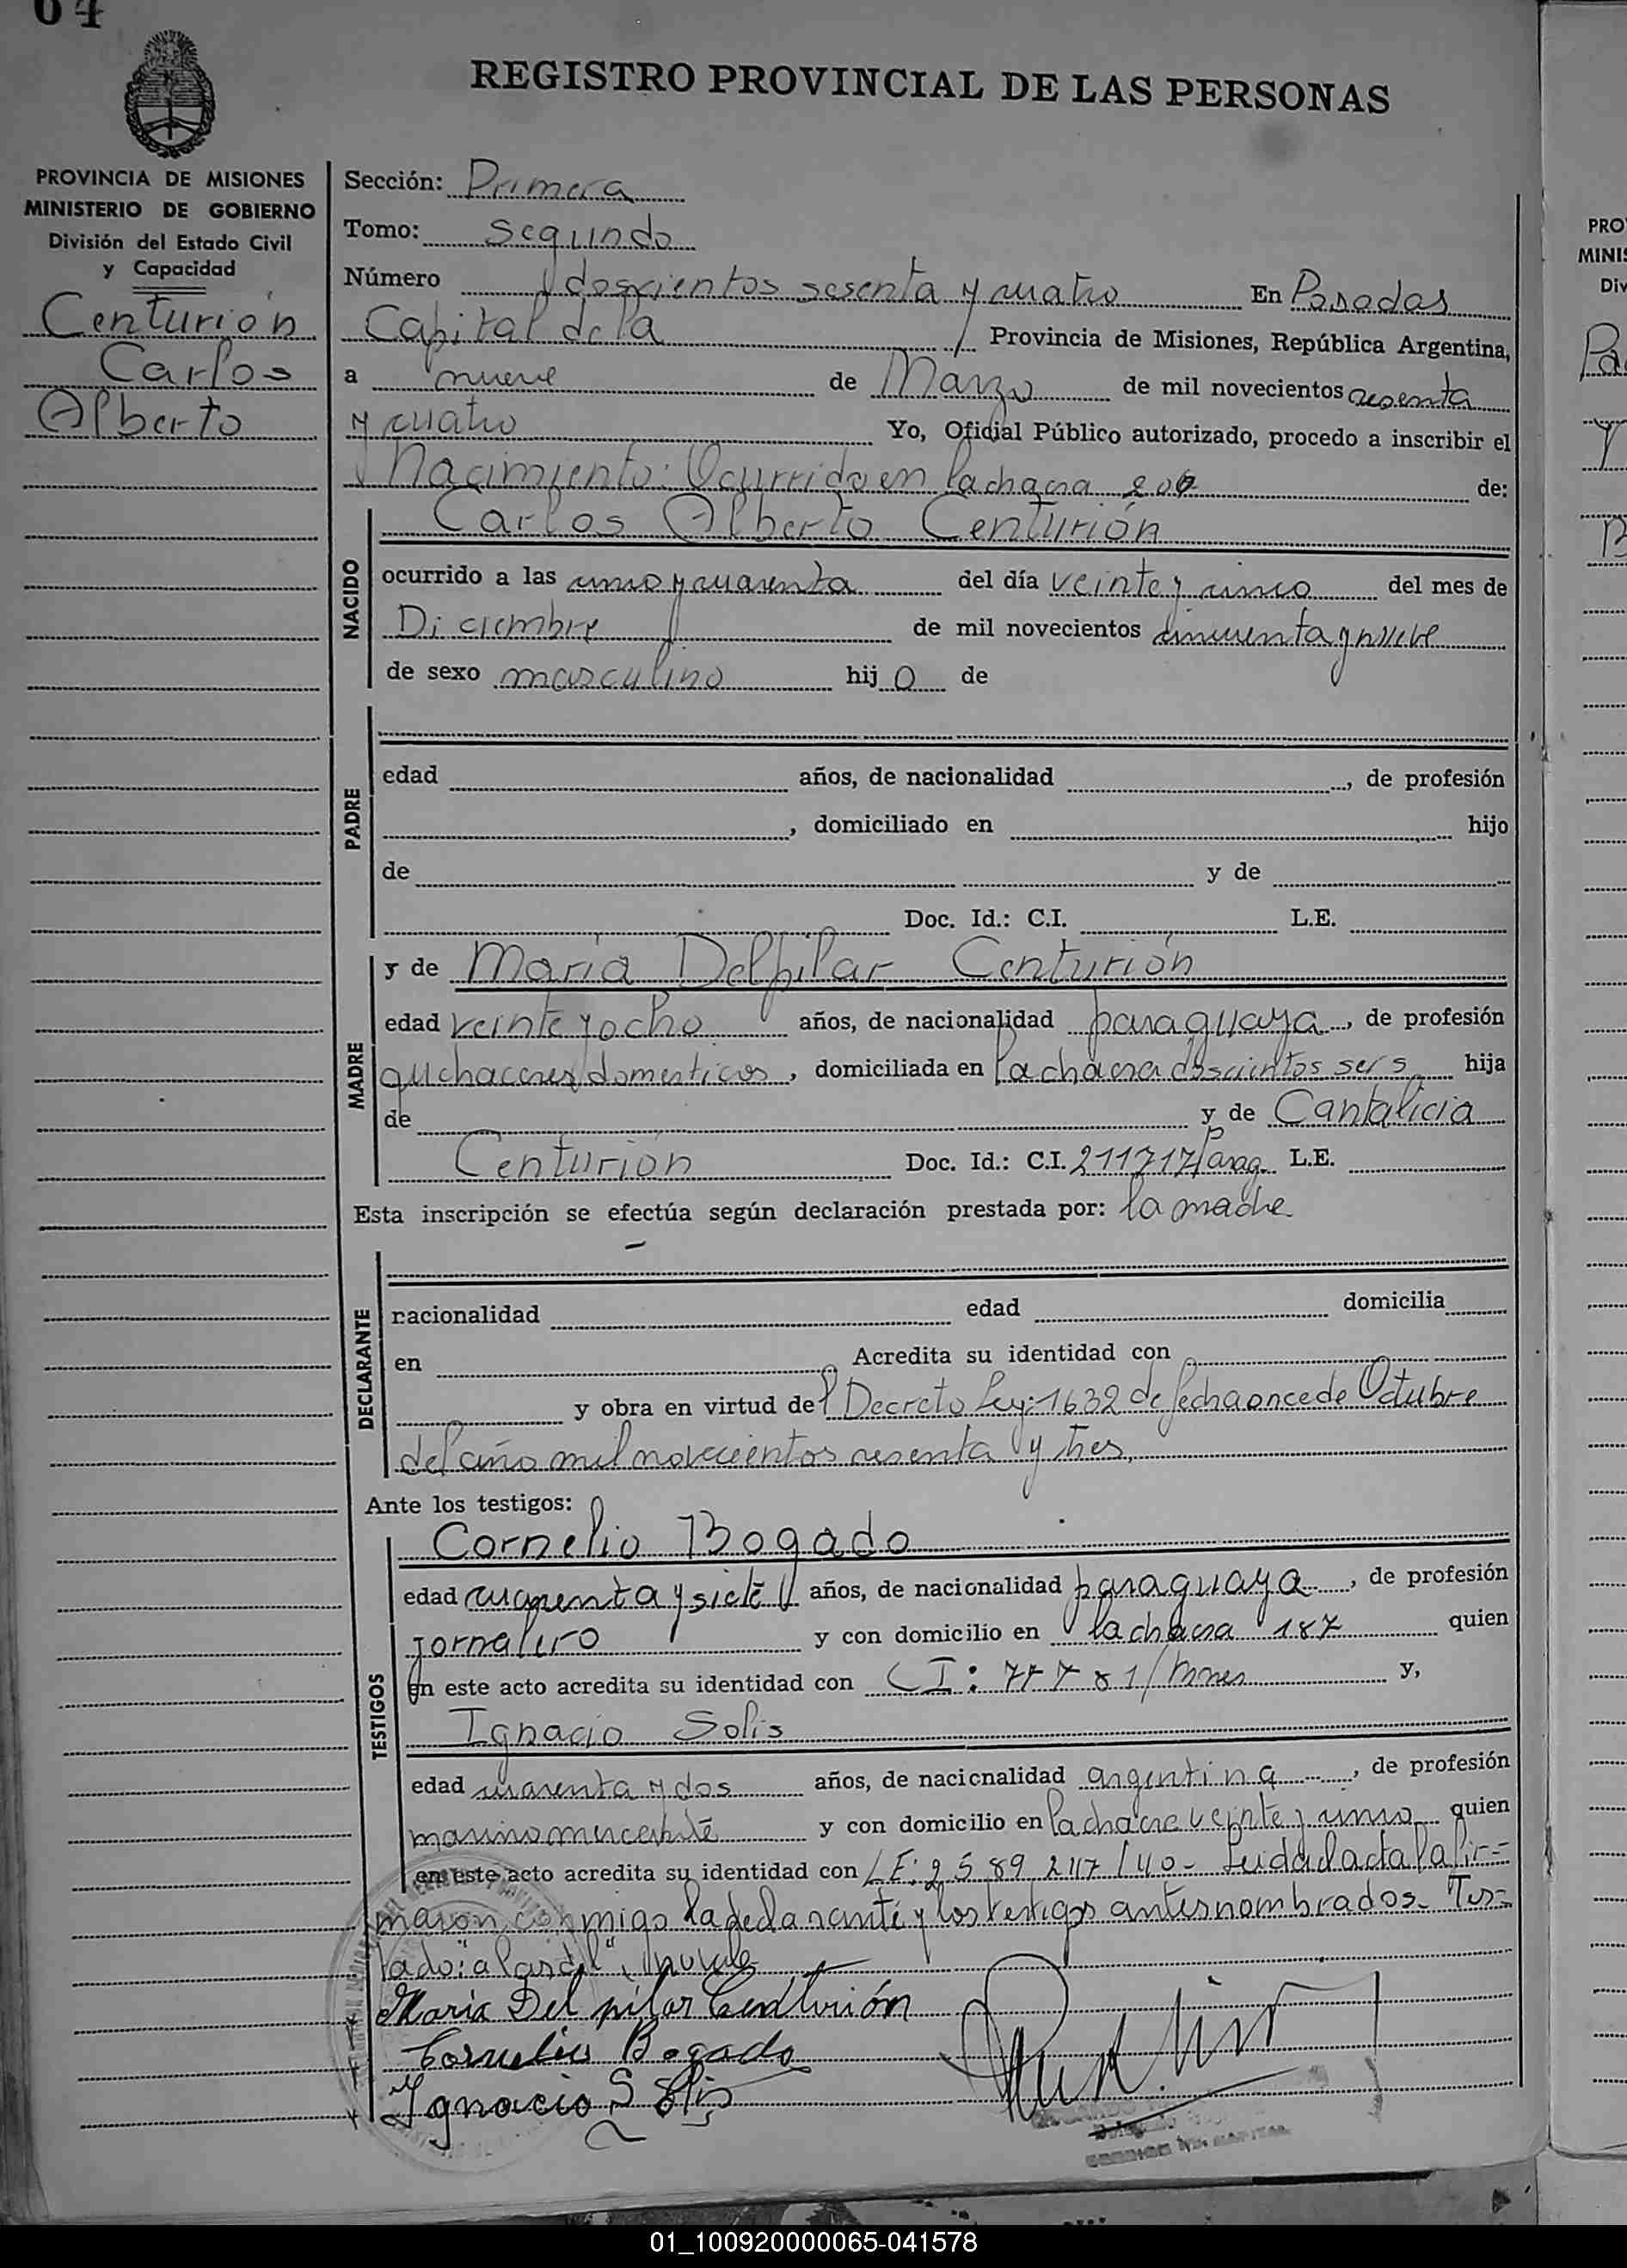 64
REGISTRO PROVINCIAL DE LAS PERSONAS
PROVINCIA DE MISIONES
MINISTERIO DE GOBIERNO
División del Estado Civil
y Capacidad
Centurión
Carlos
Alberto
Sección: Primera
Tomo: Segundo
Número doscientos sesenta y cuatro En Posadas
Capital de la Provincia de Misiones, República Argentina,
a nueve de Marzo de mil novecientos sesenta
y cuatro Yo, Oficial Público autorizado, procedo a inscribir el
Nacimiento: Ocurrido en la chacra 206 de:
NACIDO
Carlos Alberto Centurión
ocurrido a las uno y cuarenta del día veinte y cinco del mes de
Diciembre de mil novecientos cincuenta y nueve
de sexo masculino hij o de
PADRE
edad años, de nacionalidad , de profesión
, domiciliado en hijo
de y de
Doc. Id.: C.I. L.E.
MADRE
y de María Delpilar Centurión
edad veinte y ocho años, de nacionalidad paraguaya, de profesión
quehaceres domesticos, domiciliada en la chacra doscientos seis hija
de y de Cantalicia
Centurión Doc. Id.: C.I. 211717/Parag. L.E.
Esta inscripción se efectúa según declaración prestada por: la madre
DECLARANTE
nacionalidad edad domicilia
en Acredita su identidad con
y obra en virtud del Decreto Ley: 1632 de fecha once de Octubre
del año mil novecientos sesenta y tres,
Ante los testigos:
TESTIGOS
Cornelio Bogado
edad cuarenta y siete años, de nacionalidad paraguaya, de profesión
jornalero y con domicilio en la chacra 187 quien
en este acto acredita su identidad con CI: 77781/Mnes y,
Ignacio Solis
edad cuarenta y dos años, de nacionalidad argentina, de profesión
marino mercante y con domicilio en la chacra veinte y uno quien
en este acto acredita su identidad con LE: 2589247/40- Leida el acta la fir=
maron conmigo la declarante y los testigos antes nombrados- Tes=
tado: "al cual",
Maria Del pilar Centurión
Cornelio Bogado
Ignacio Solis
PRO
MINIS
Div
01_100920000065-041578